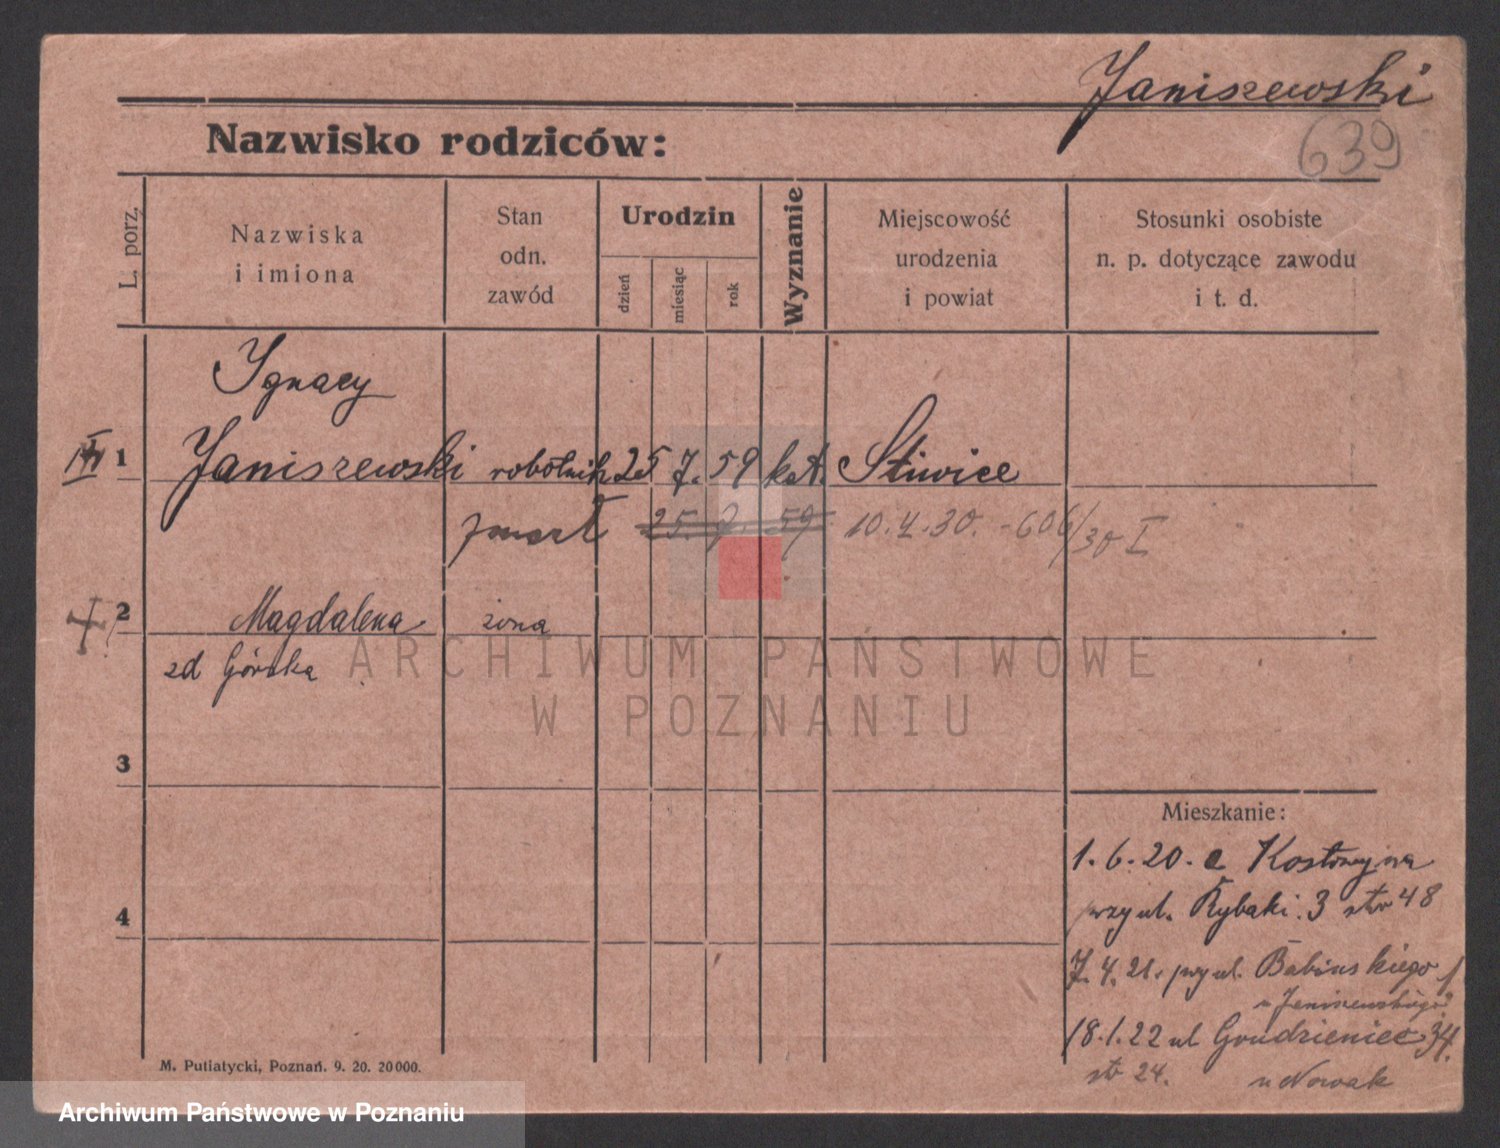 Janiszewski
639
Nazwisko rodziców:
L. porz.
Nazwiska
i imiona
Stan
odn.
zawód
Urodzin
dzień
miesiąc
rok
Wyznanie
Miejscowość
urodzenia
i powiat
Stosunki osobiste
n. p. dotyczące zawodu
i t. d.
Ignacy
1 Janiszewski robotnik 25 7. 59 kat. Stiwice
zmarł 25. 7. 59 10.4.30. - 606/30 I
2 Magdalena żona
zd Górska
ARCHIWUM PAŃSTWOWE
W POZNANIU
3
4
Mieszkanie:
1.6.20. Kostrzyna
przy ul. Rybaki 3 str 48
7.4.21. przy ul. Babińskiego 1
u Janiszewskiego
18.1.22 ul Grudzieniec 34.
str 24. u Nowak
M. Putiatycki, Poznań. 9. 20. 20000.
Archiwum Państwowe w Poznaniu